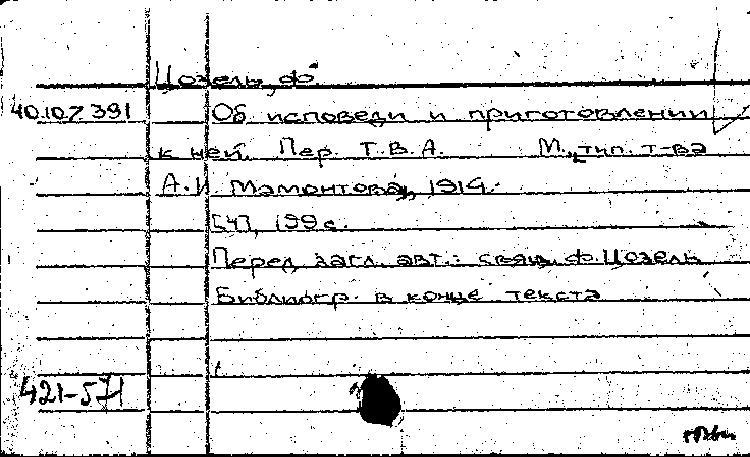 Цозель, Ф.
40.107 391 Об исповеди и приготовлении
к ней. Пер. Т.В.А. М., тип. т-ва
А.И. Мамонтова, 1914.
[4], 199 с.
Перед загл. авт.: свящ. Ф. Цозель
Библиогр. в конце текста
421-571